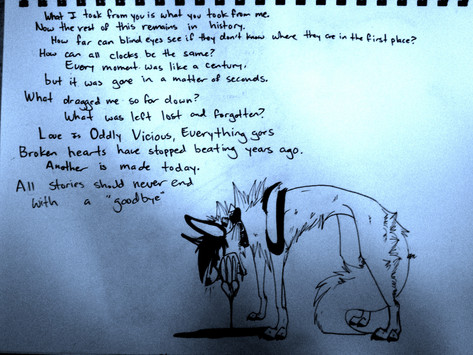 What I took from you is what you took from me.
Now the rest of this remains in history.
How far can blind eyes see if they don't know where they are in the first place?
How can all clocks be the same?
Every moment was like a century,
but it was gone in a matter of seconds.
What dragged me so far down?
What was left lost and forgotten?
Love Is Oddly Vicious, Everything goes
Broken hearts have stopped beating years ago.
Another is made today.
All stories should never end
with a "goodbye"